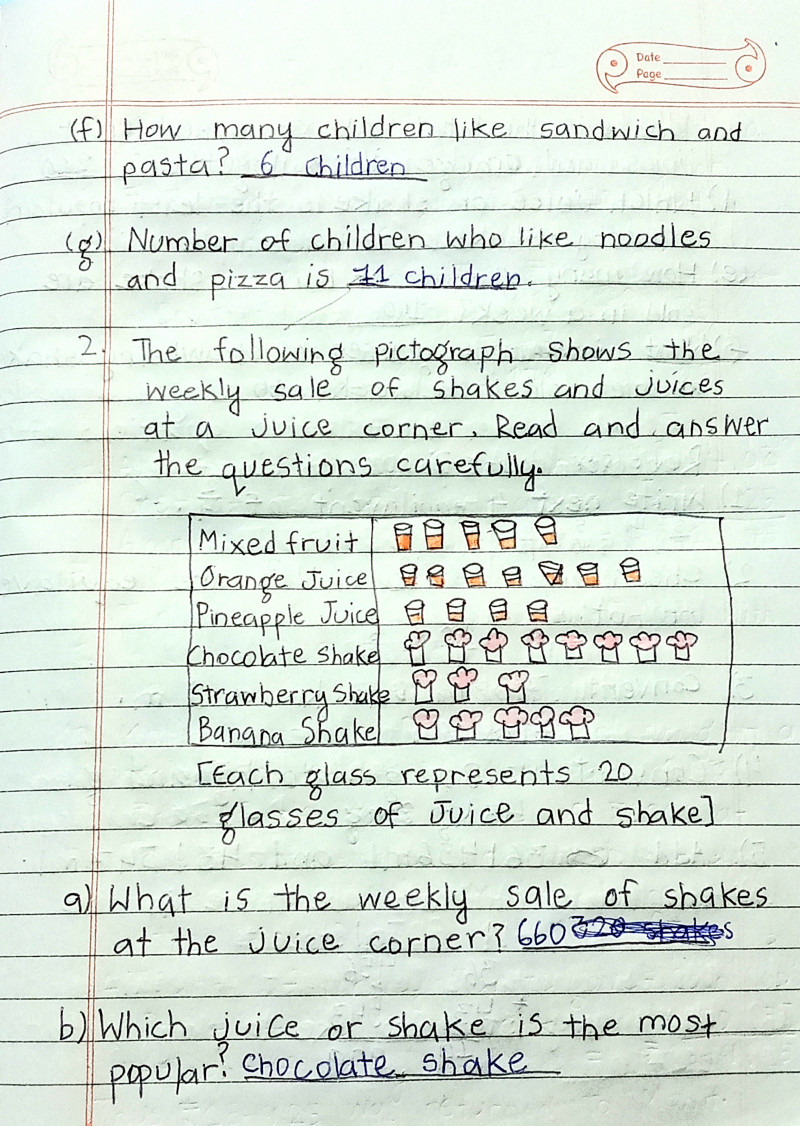 Date
Page
(f) How many children like sandwich and
pasta? 6 children
(g) Number of children who like noodles
and pizza is 11 children.
2. The following pictograph shows the
weekly sale of shakes and juices
at a juice corner. Read and answer
the questions carefully.
Mixed fruit
Orange Juice
Pineapple Juice
Chocolate Shake
Strawberry Shake
Banana Shake
[Each glass represents 20
glasses of Juice and shake]
a) What is the weekly sale of shakes
at the juice corner? 660 320 shakes
b) Which juice or shake is the most
popular? chocolate shake